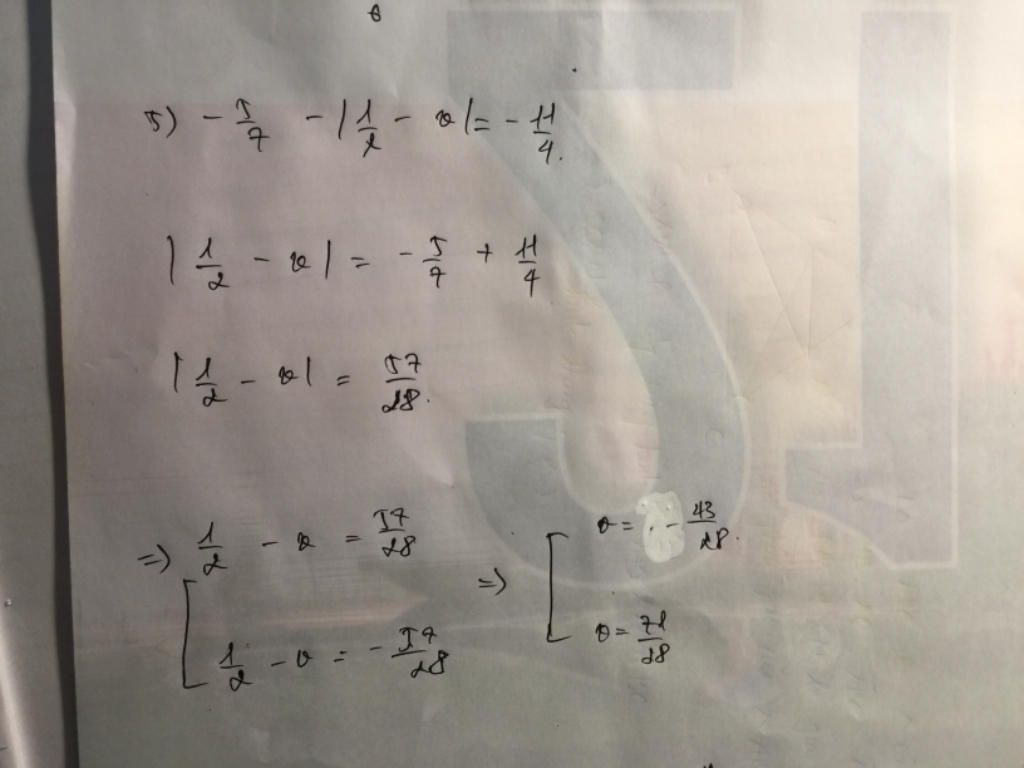 5) - 5/7 - |1/2 - x| = - 11/4.
|1/2 - x| = - 5/7 + 11/4
|1/2 - x| = 57/28.
=> [ 1/2 - x = 57/28 => [ x = - 43/28.
1/2 - x = - 57/28 x = 71/28